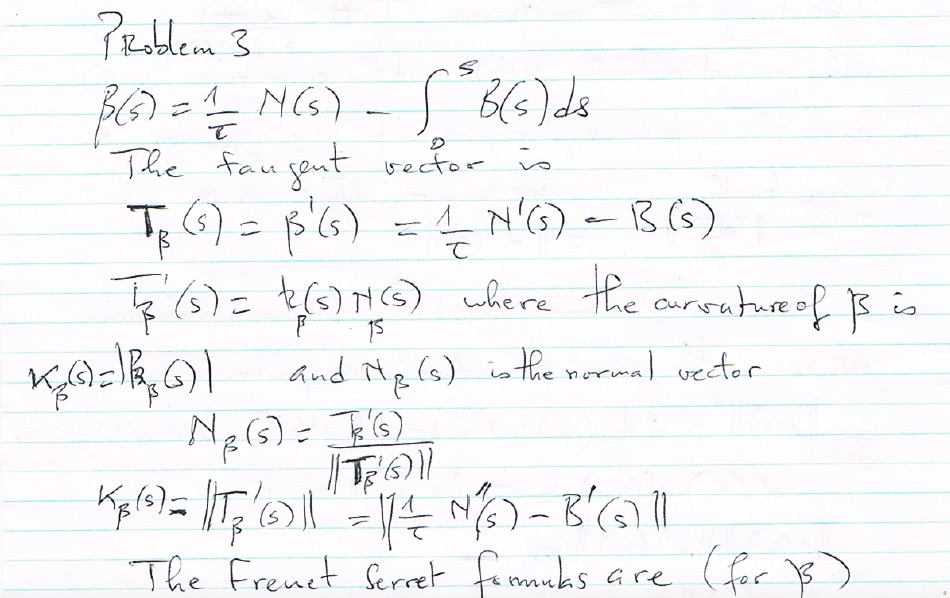 Problem 3
β(s) = 1/τ N(s) - ∫₀ˢ B(s) ds
The tangent vector is
T_β(s) = β'(s) = 1/τ N'(s) - B(s)
T_β'(s) = k_β(s) N_β(s) where the curvature of β is
κ_β(s) = |k_β(s)| and N_β(s) is the normal vector
N_β(s) = T_β'(s) / ||T_β'(s)||
κ_β(s) = ||T_β'(s)|| = ||1/τ N''(s) - B'(s)||
The Frenet Serret formulas are (for β)